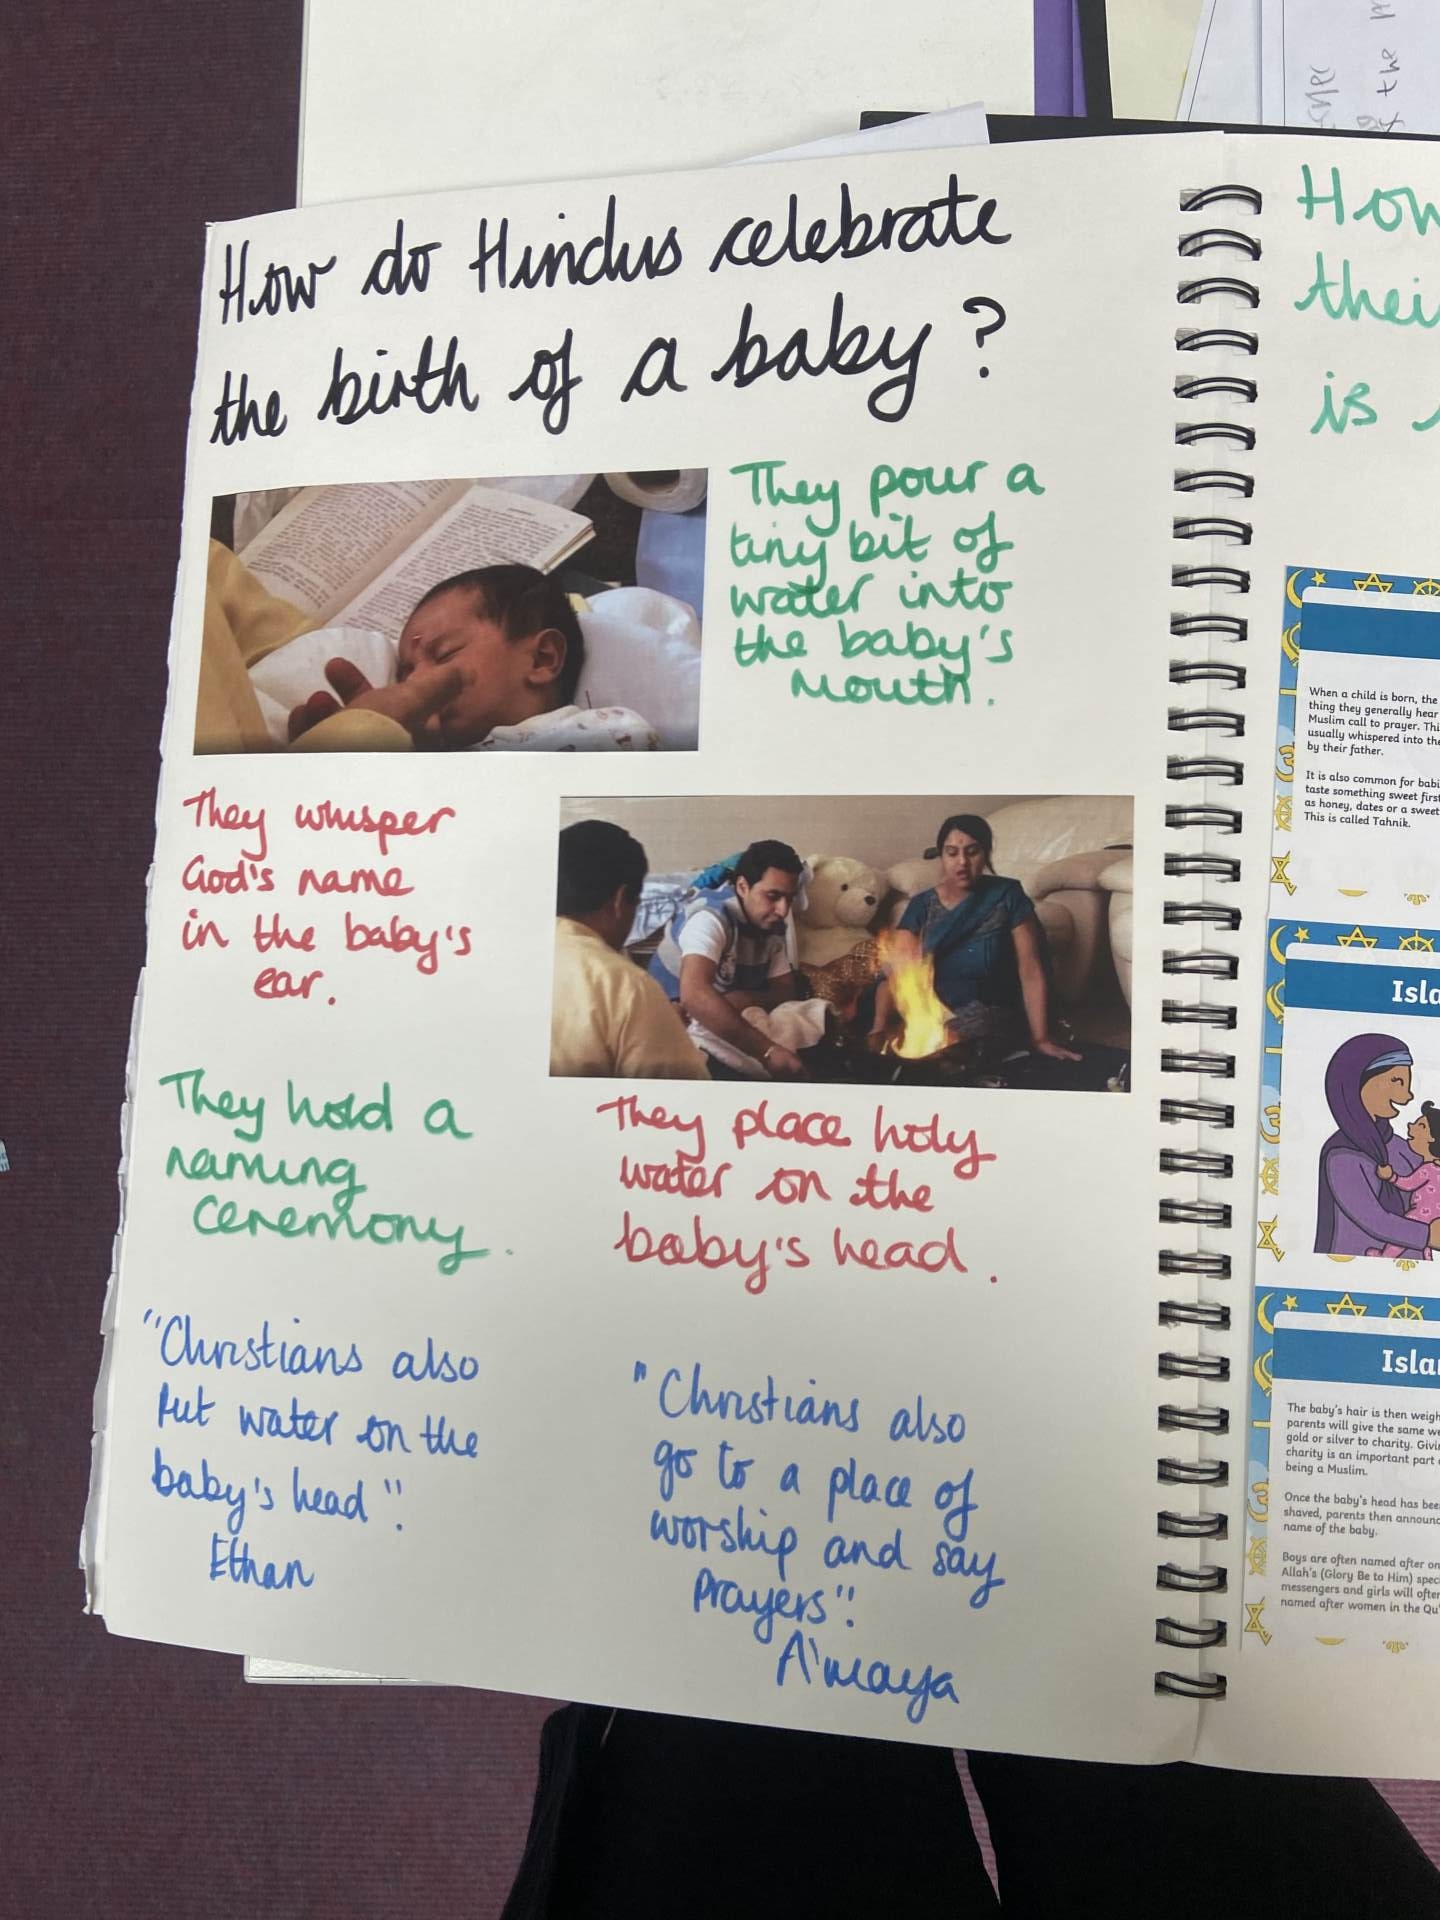 How do Hindus celebrate
the birth of a baby?
They pour a
tiny bit of
water into
the baby's
mouth.
They whisper
God's name
in the baby's
ear.
They hold a
naming
ceremony.
They place holy
water on the
baby's head.
"Christians also
put water on the
baby's head".
Ethan
"Christians also
go to a place of
worship and say
prayers".
A'maya
How
thei
is
When a child is born, the
thing they generally hear
Muslim call to prayer. Thi
usually whispered into the
by their father.
It is also common for babi
taste something sweet first
as honey, dates or a sweet
This is called Tahnik.
Isla
Isla
The baby's hair is then weigh
parents will give the same we
gold or silver to charity. Givi
charity is an important part
being a Muslim.
Once the baby's head has bee
shaved, parents then announc
name of the baby.
Boys are often named after on
Allah's (Glory Be to Him) spec
messengers and girls will ofte
named after women in the Qu'
the